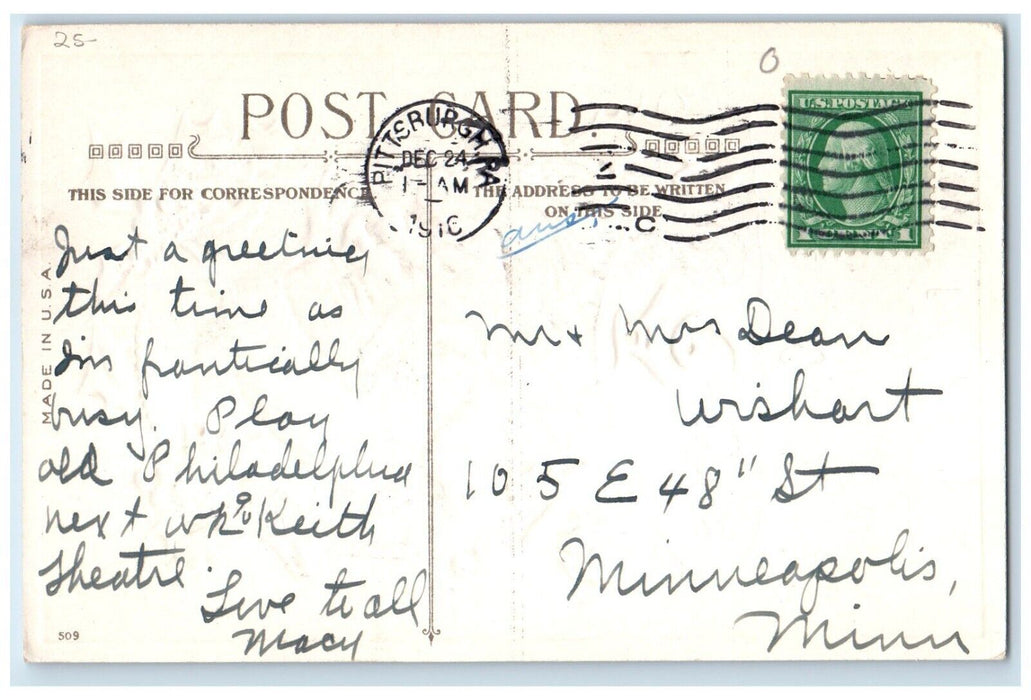 25-
O
POST CARD.
U.S. POSTAGE
1 1
PITTSBURGH PA
DEC 24
1 - AM
1916
THIS SIDE FOR CORRESPONDENCE
THE ADDRESS TO BE WRITTEN
ON THIS SIDE
MADE IN U.S.A.
Just a greeting
this time as
Im frantically
busy. Play
old Philadelphia
next wk % Keith
Theatre.
Love to all
Macy
509
Mr + Mrs Dean
Wishart
105 E 48" St
Minneapolis,
Minn